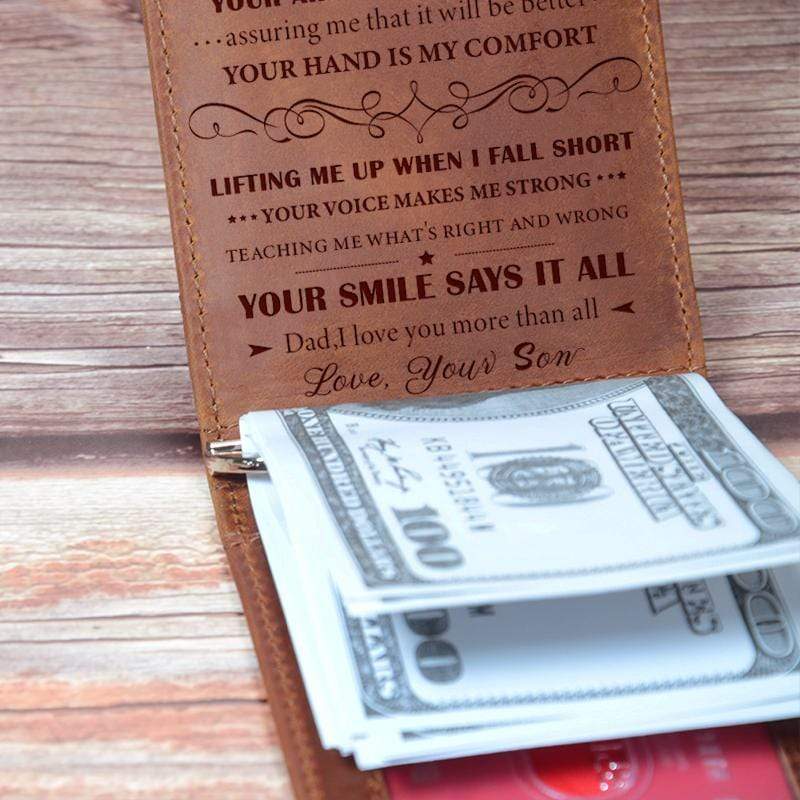 YOUR
...assuring me that it will be better
YOUR HAND IS MY COMFORT
LIFTING ME UP WHEN I FALL SHORT
★★★YOUR VOICE MAKES ME STRONG★★★
TEACHING ME WHAT'S RIGHT AND WRONG
YOUR SMILE SAYS IT ALL
Dad,I love you more than all
Love, Your Son
ONE HUNDRED DOLLARS
100
100